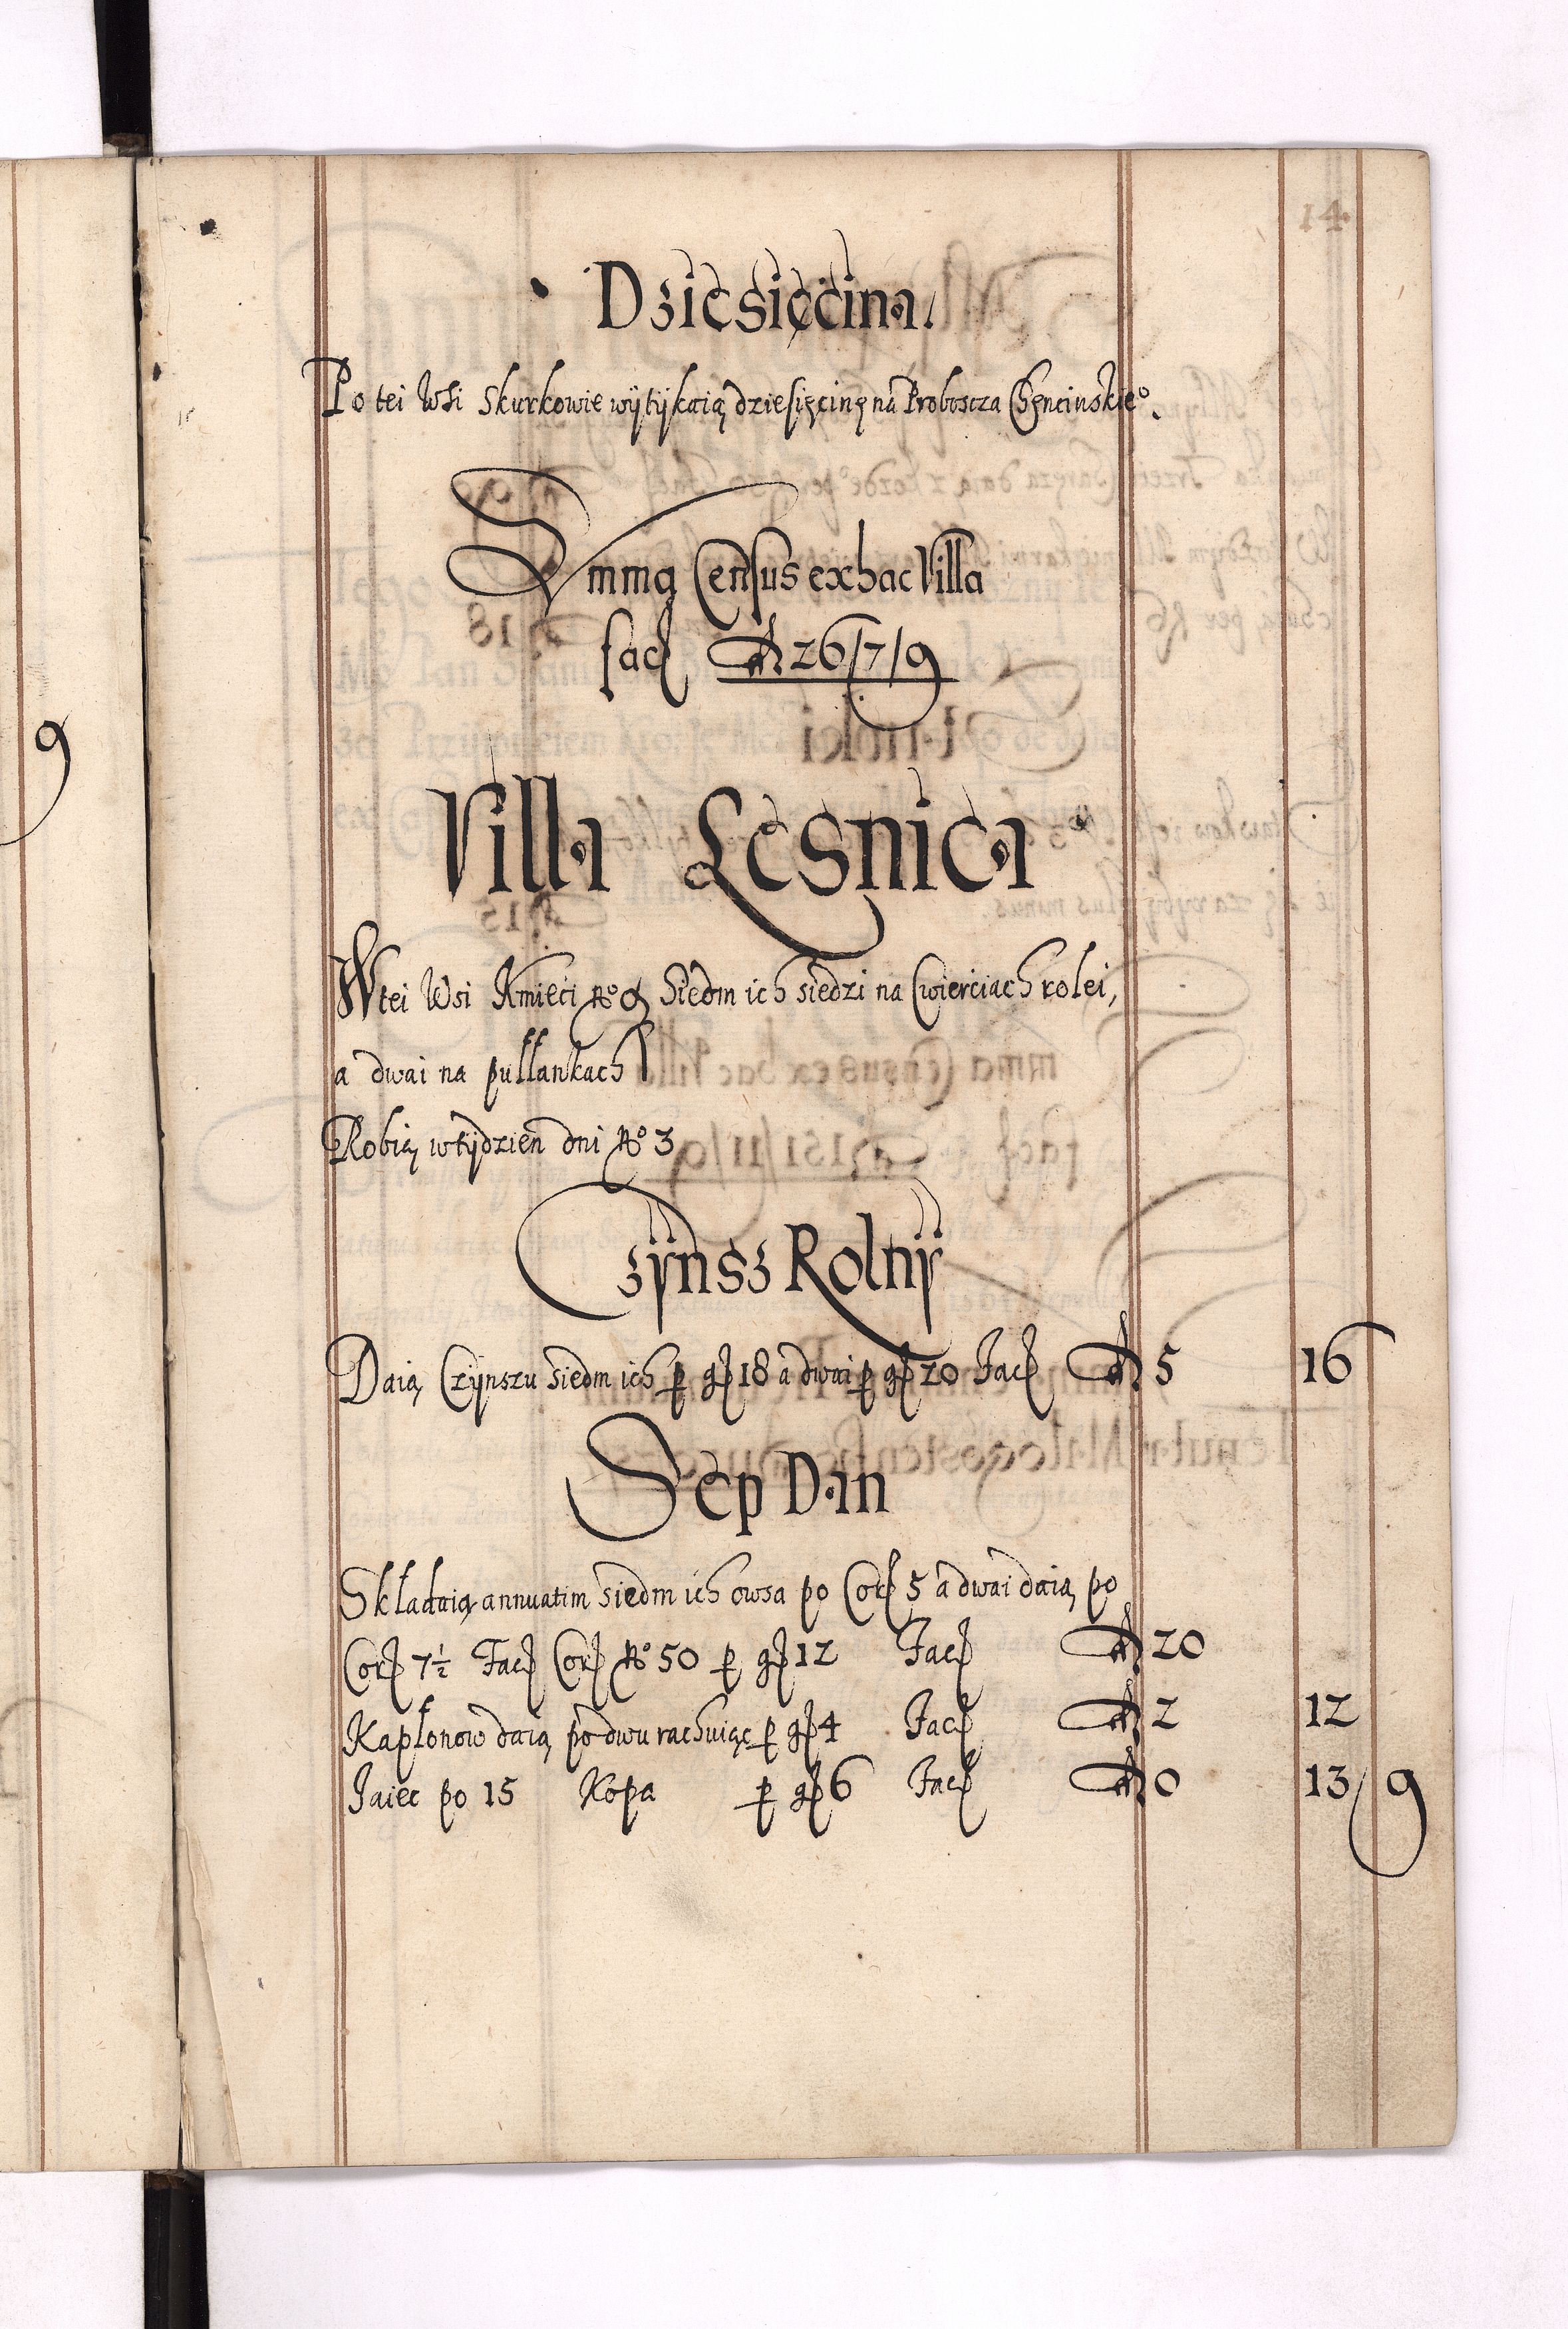 14
Dziesięcina.
Po tei Wsi Skurkowie wÿtÿkaią dziesięcinę na Proboscza Chęncinskie°.
Summa Census ex hac Villa
facʃ fl 26/7/9
Villa Lesnica
W tei Wsi Kmieci N° 9 Siedm ich siedzi na Cwierciach rolei,
a dwai na pułłankach
Robią w tÿdzien dni N° 3
Czÿnsz Rolnÿ
Daią Czÿnszu siedm ich ꝑ gʃ 18 a dwai ꝑ gʃ 20 Facʃ fl 5 16
Sep Dan
Składaią annuatim siedm ich owsa po Corʃ 5 a dwai daią po
Corʃ 7½ Facʃ Corʃ N° 50 ꝑ gʃ 12 Facʃ fl 20
Kapłonow daią po dwu rachuiąc ꝑ gʃ 4 Facʃ fl 2 12
Jaiec po 15 Kopa ꝑ gʃ 6 Facʃ fl 0 13/9
9